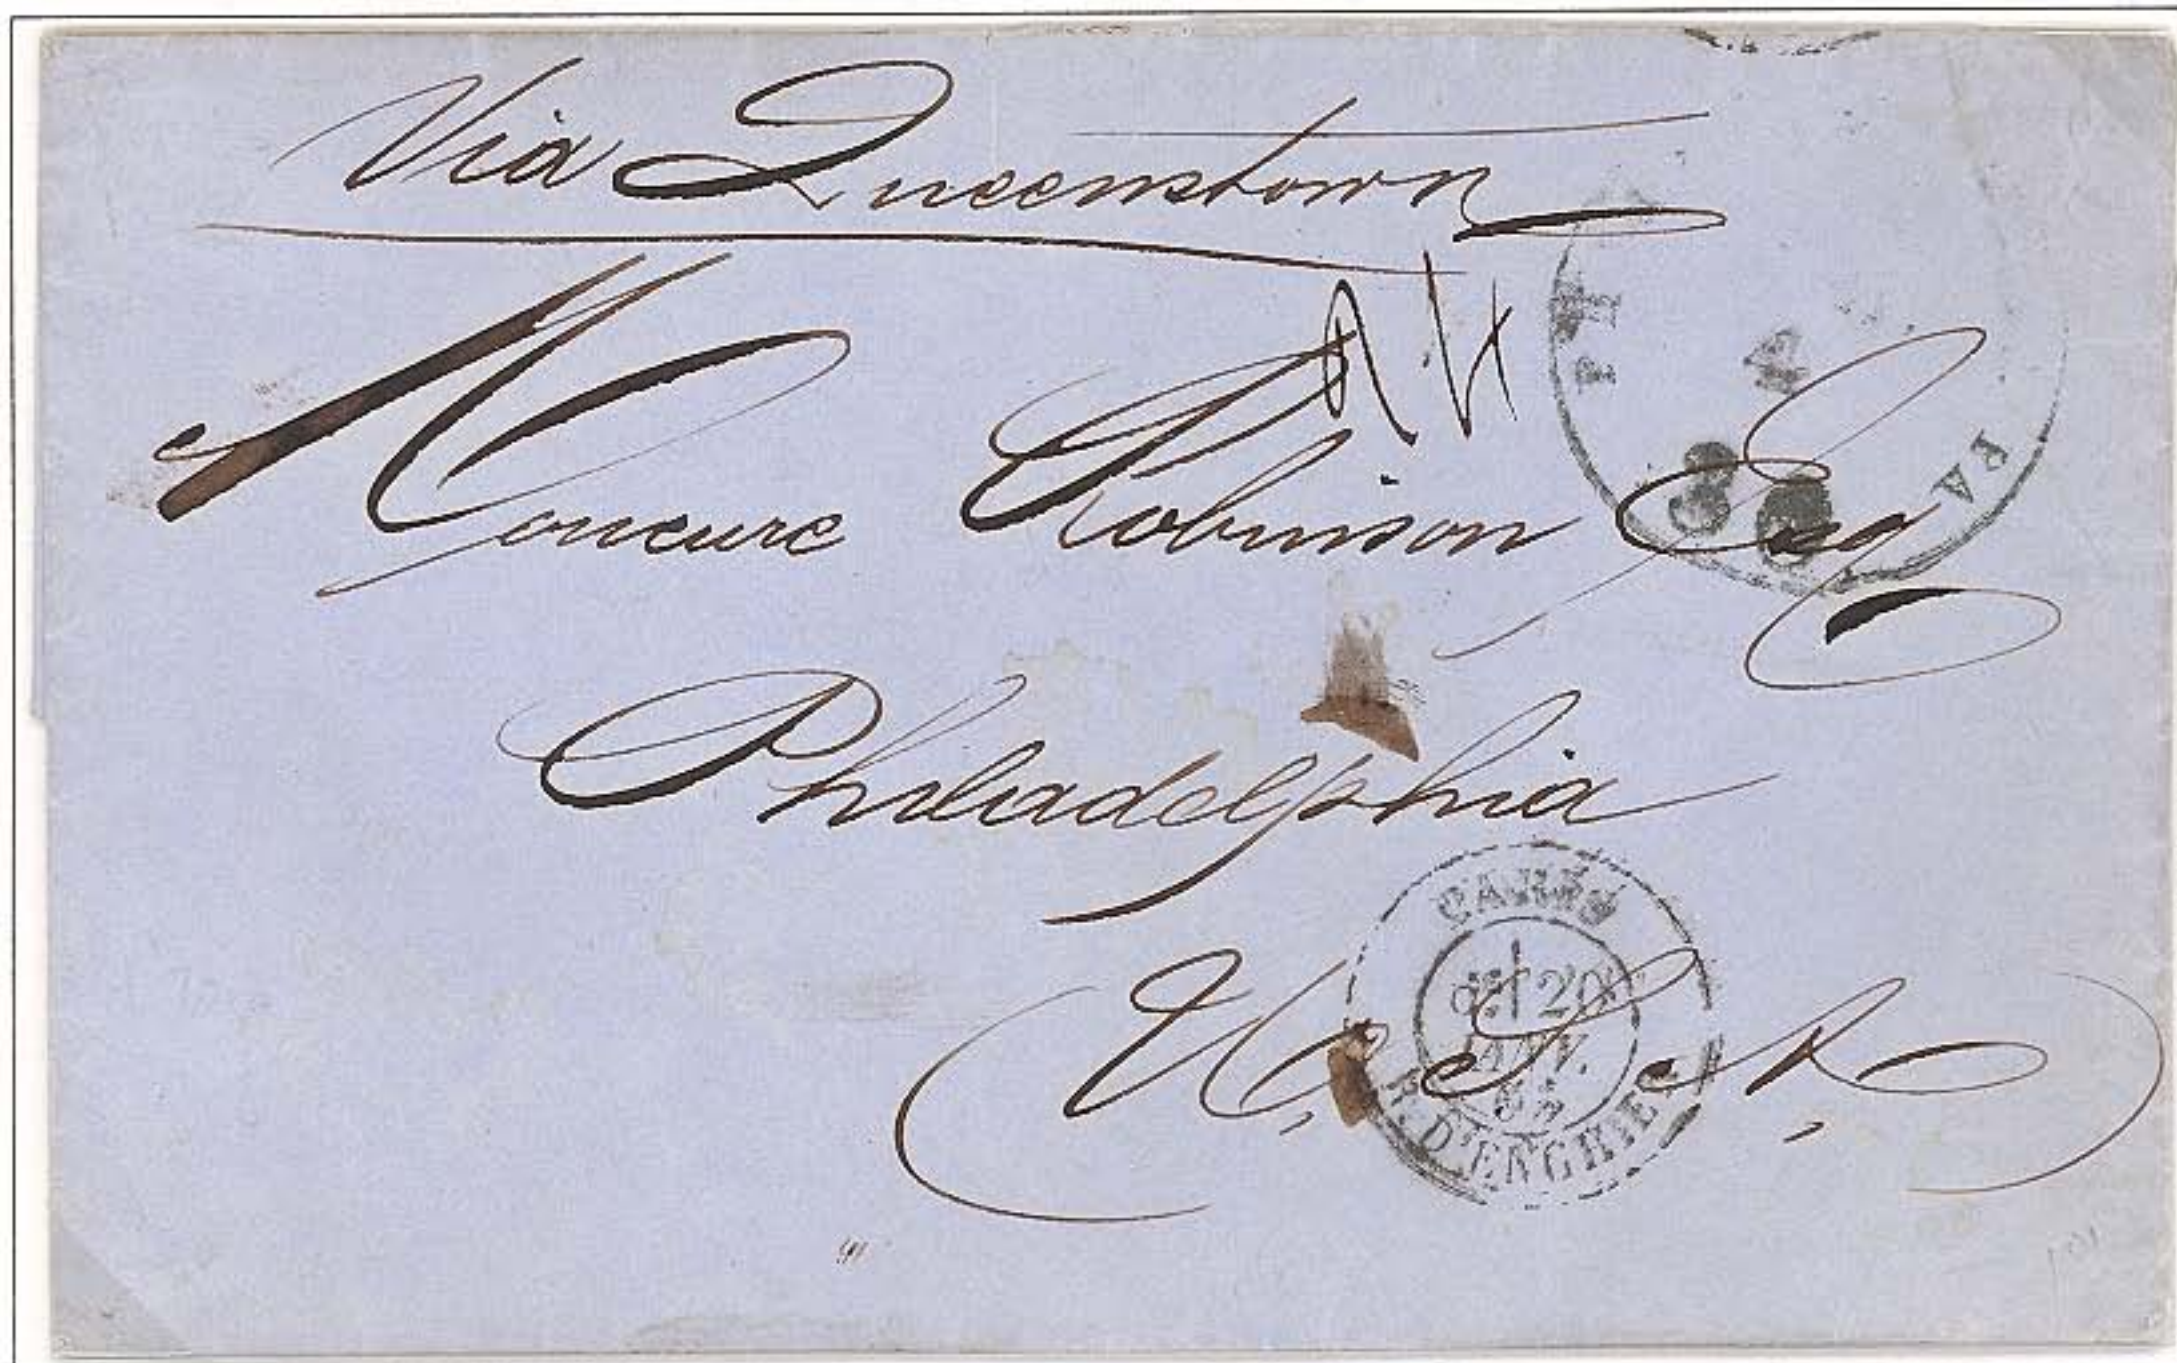 Via Queenstown
Moncure Robinson Esq
Philadelphia
U. S. A.
20
JANV.
R. D'ENGHIEN
PA